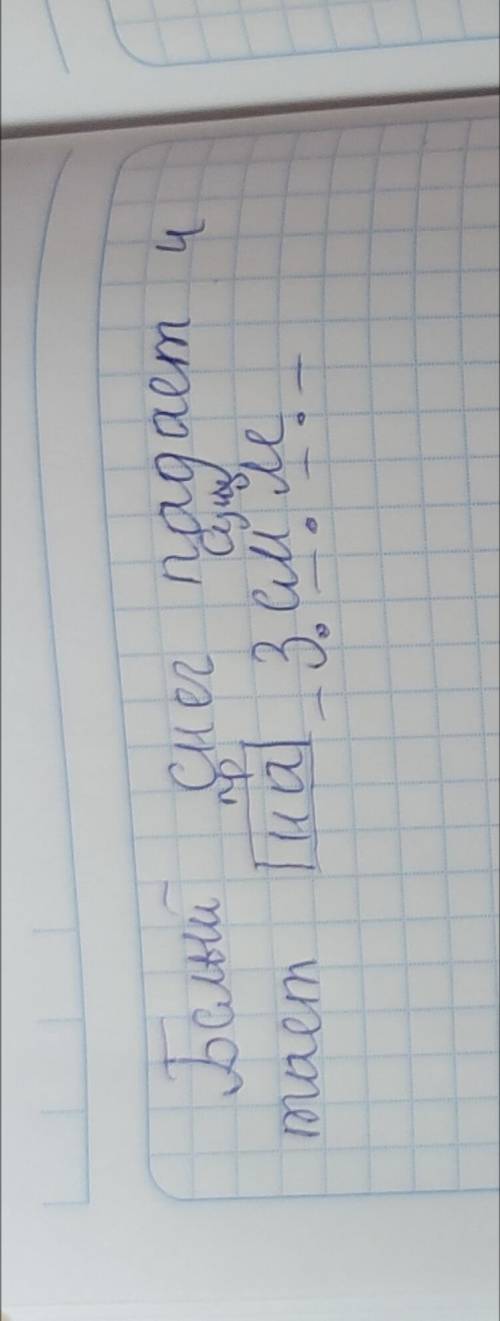 Белый снег падает и
пр сущ
тает на земле